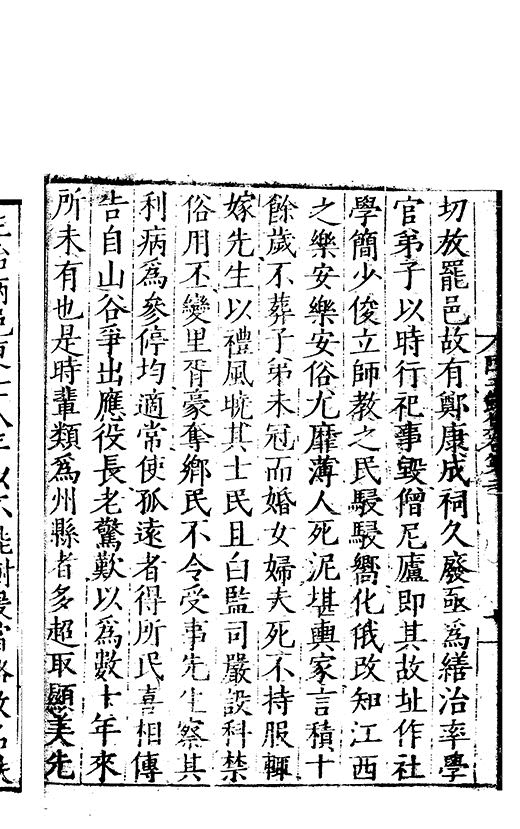 切放罷邑故有鄭康成祠久廢亟為繕治率學
官弟子以時行祀事毀僧尼廬即其故址作社
學簡少俊立師教之民駸駸嚮化俄改知江西
之樂安樂安俗尤靡薄人死泥堪輿家言積十
餘歲不葬子弟未冠而婚女婦夫死不持服輒
嫁先生以禮風曉其士民且白監司嚴設科禁
俗用丕變里胥豪奪鄉民不令受事先生察其
利病為參停均適常使孤遠者得所民喜相傳
告自山谷爭出應役長老驚歎以為數十年來
所未有也是時輩類為州縣者多超取顯美先